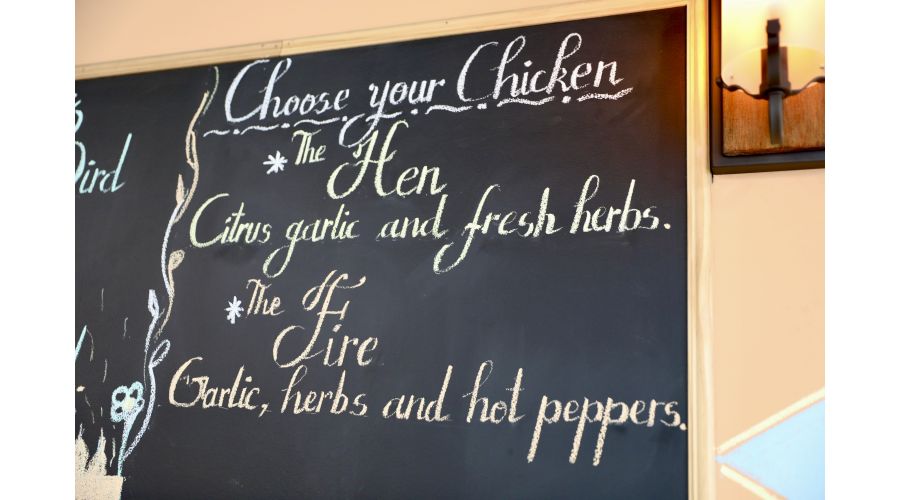 Bird
Choose your Chicken
*The Hen
Citrus garlic and fresh herbs.
*The Fire
Garlic, herbs and hot peppers.